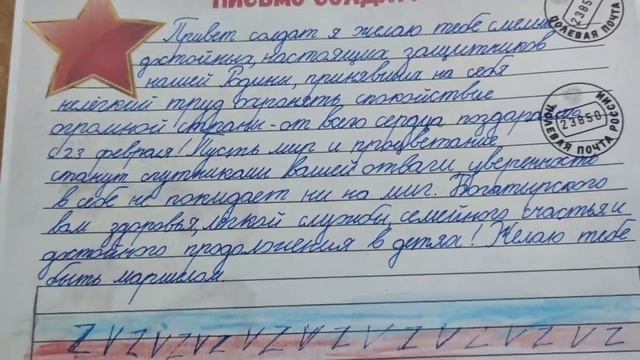 ПИСЬМО СОЛДАТ
Привет солдат я желаю тебе смелых
достойных, настоящих защитников
нашей Родины, принявших на себя
нелёгкий труд охранять спокойствие
огромной страны - от всего сердца поздравляю
с 23 февраля! Пусть мир и процветание
станут спутниками Вашей отваги уверенность
в себе не покидает ни на миг. Богатырского
вам здоровья, лёгкой службы, семейного счастья и
достойного продолжения в детях! Желаю тебе
быть маршалом.
ПОЛЕВАЯ ПОЧТА
23850
ПОЛЕВАЯ ПОЧТА РОССИИ
23850
Z V Z V Z V Z V Z V Z V Z V Z V Z